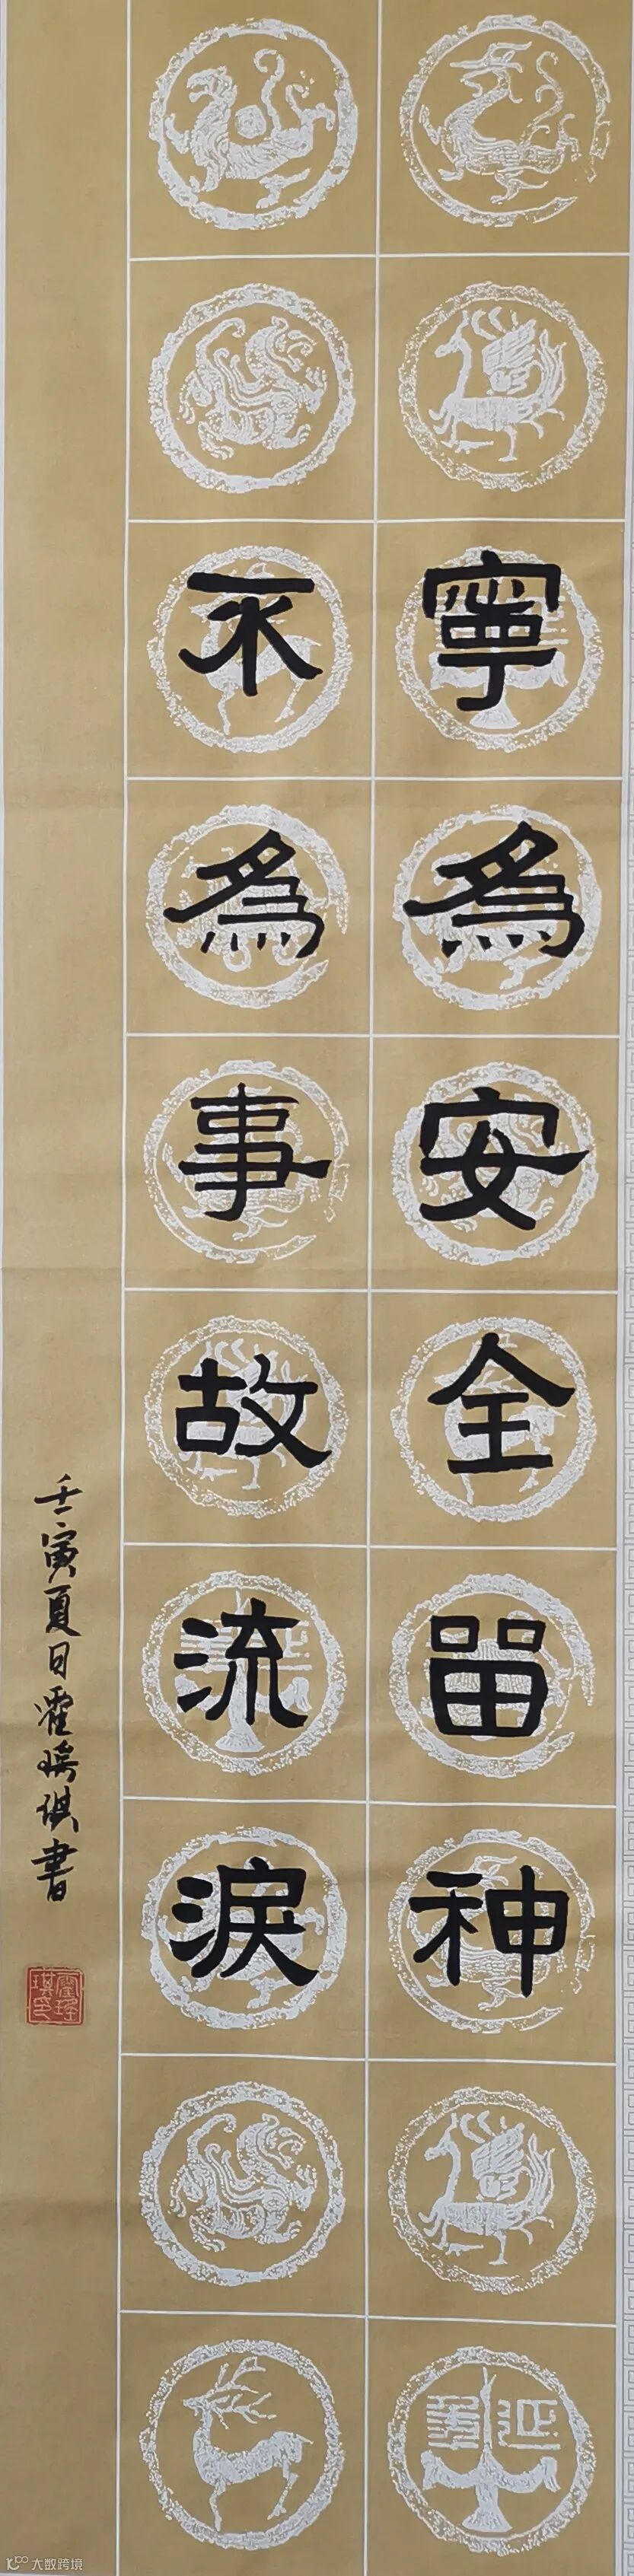 寧為安全留神
不為事故流淚
壬寅夏日霍瑤琪書
霍瑤琪印
大数跨境